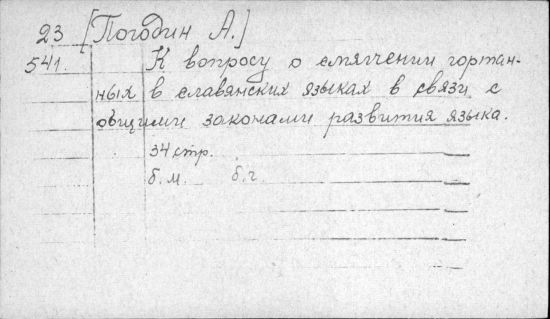 23 [Погодин А.]
541. К вопросу о смягчении гортан-
ных в славянских языках в связи с
общими законами развития языка.
34 стр.
б.м. б.г.